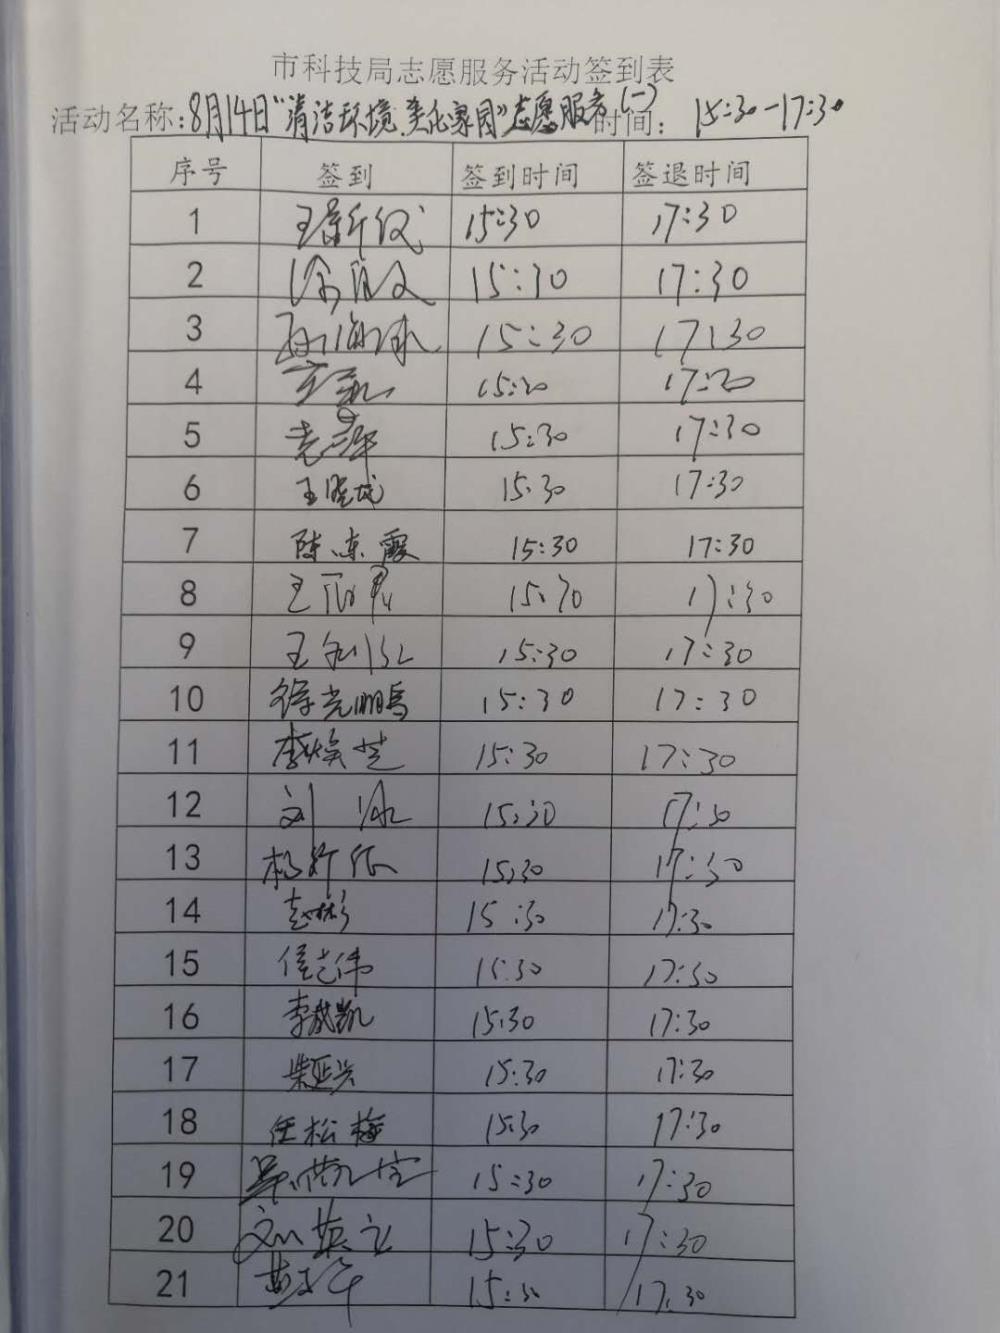 市科技局志愿服务活动签到表
活动名称:8月14日“清洁环境,美化家园”志愿服务(一)时间: 15:30-17:30
序号 签到 签到时间 签退时间
1 15:30 17:30
2 15:30 17:30
3 15:30 17:30
4 15:30 17:30
5 15:30 17:30
6 王晓龙 15:30 17:30
7 陈海霞 15:30 17:30
8 15:30 17:30
9 15:30 17:30
10 15:30 17:30
11 李焕芝 15:30 17:30
12 刘冰 15:30 17:30
13 15:30 17:30
14 赵彬 15:30 17:30
15 侯志伟 15:30 17:30
16 李成凯 15:30 17:30
17 柴亚兴 15:30 17:30
18 任松梅 15:30 17:30
19 15:30 17:30
20 15:30 17:30
21 15:30 17:30